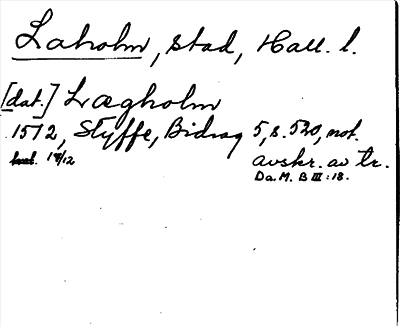 Laholm, stad, Hall. l.
[dat.] Lægholm
1512, Styffe, Bidrag 5, s. 520, not.
18/12 avskr. av tr.
Da. M. B III: 18.